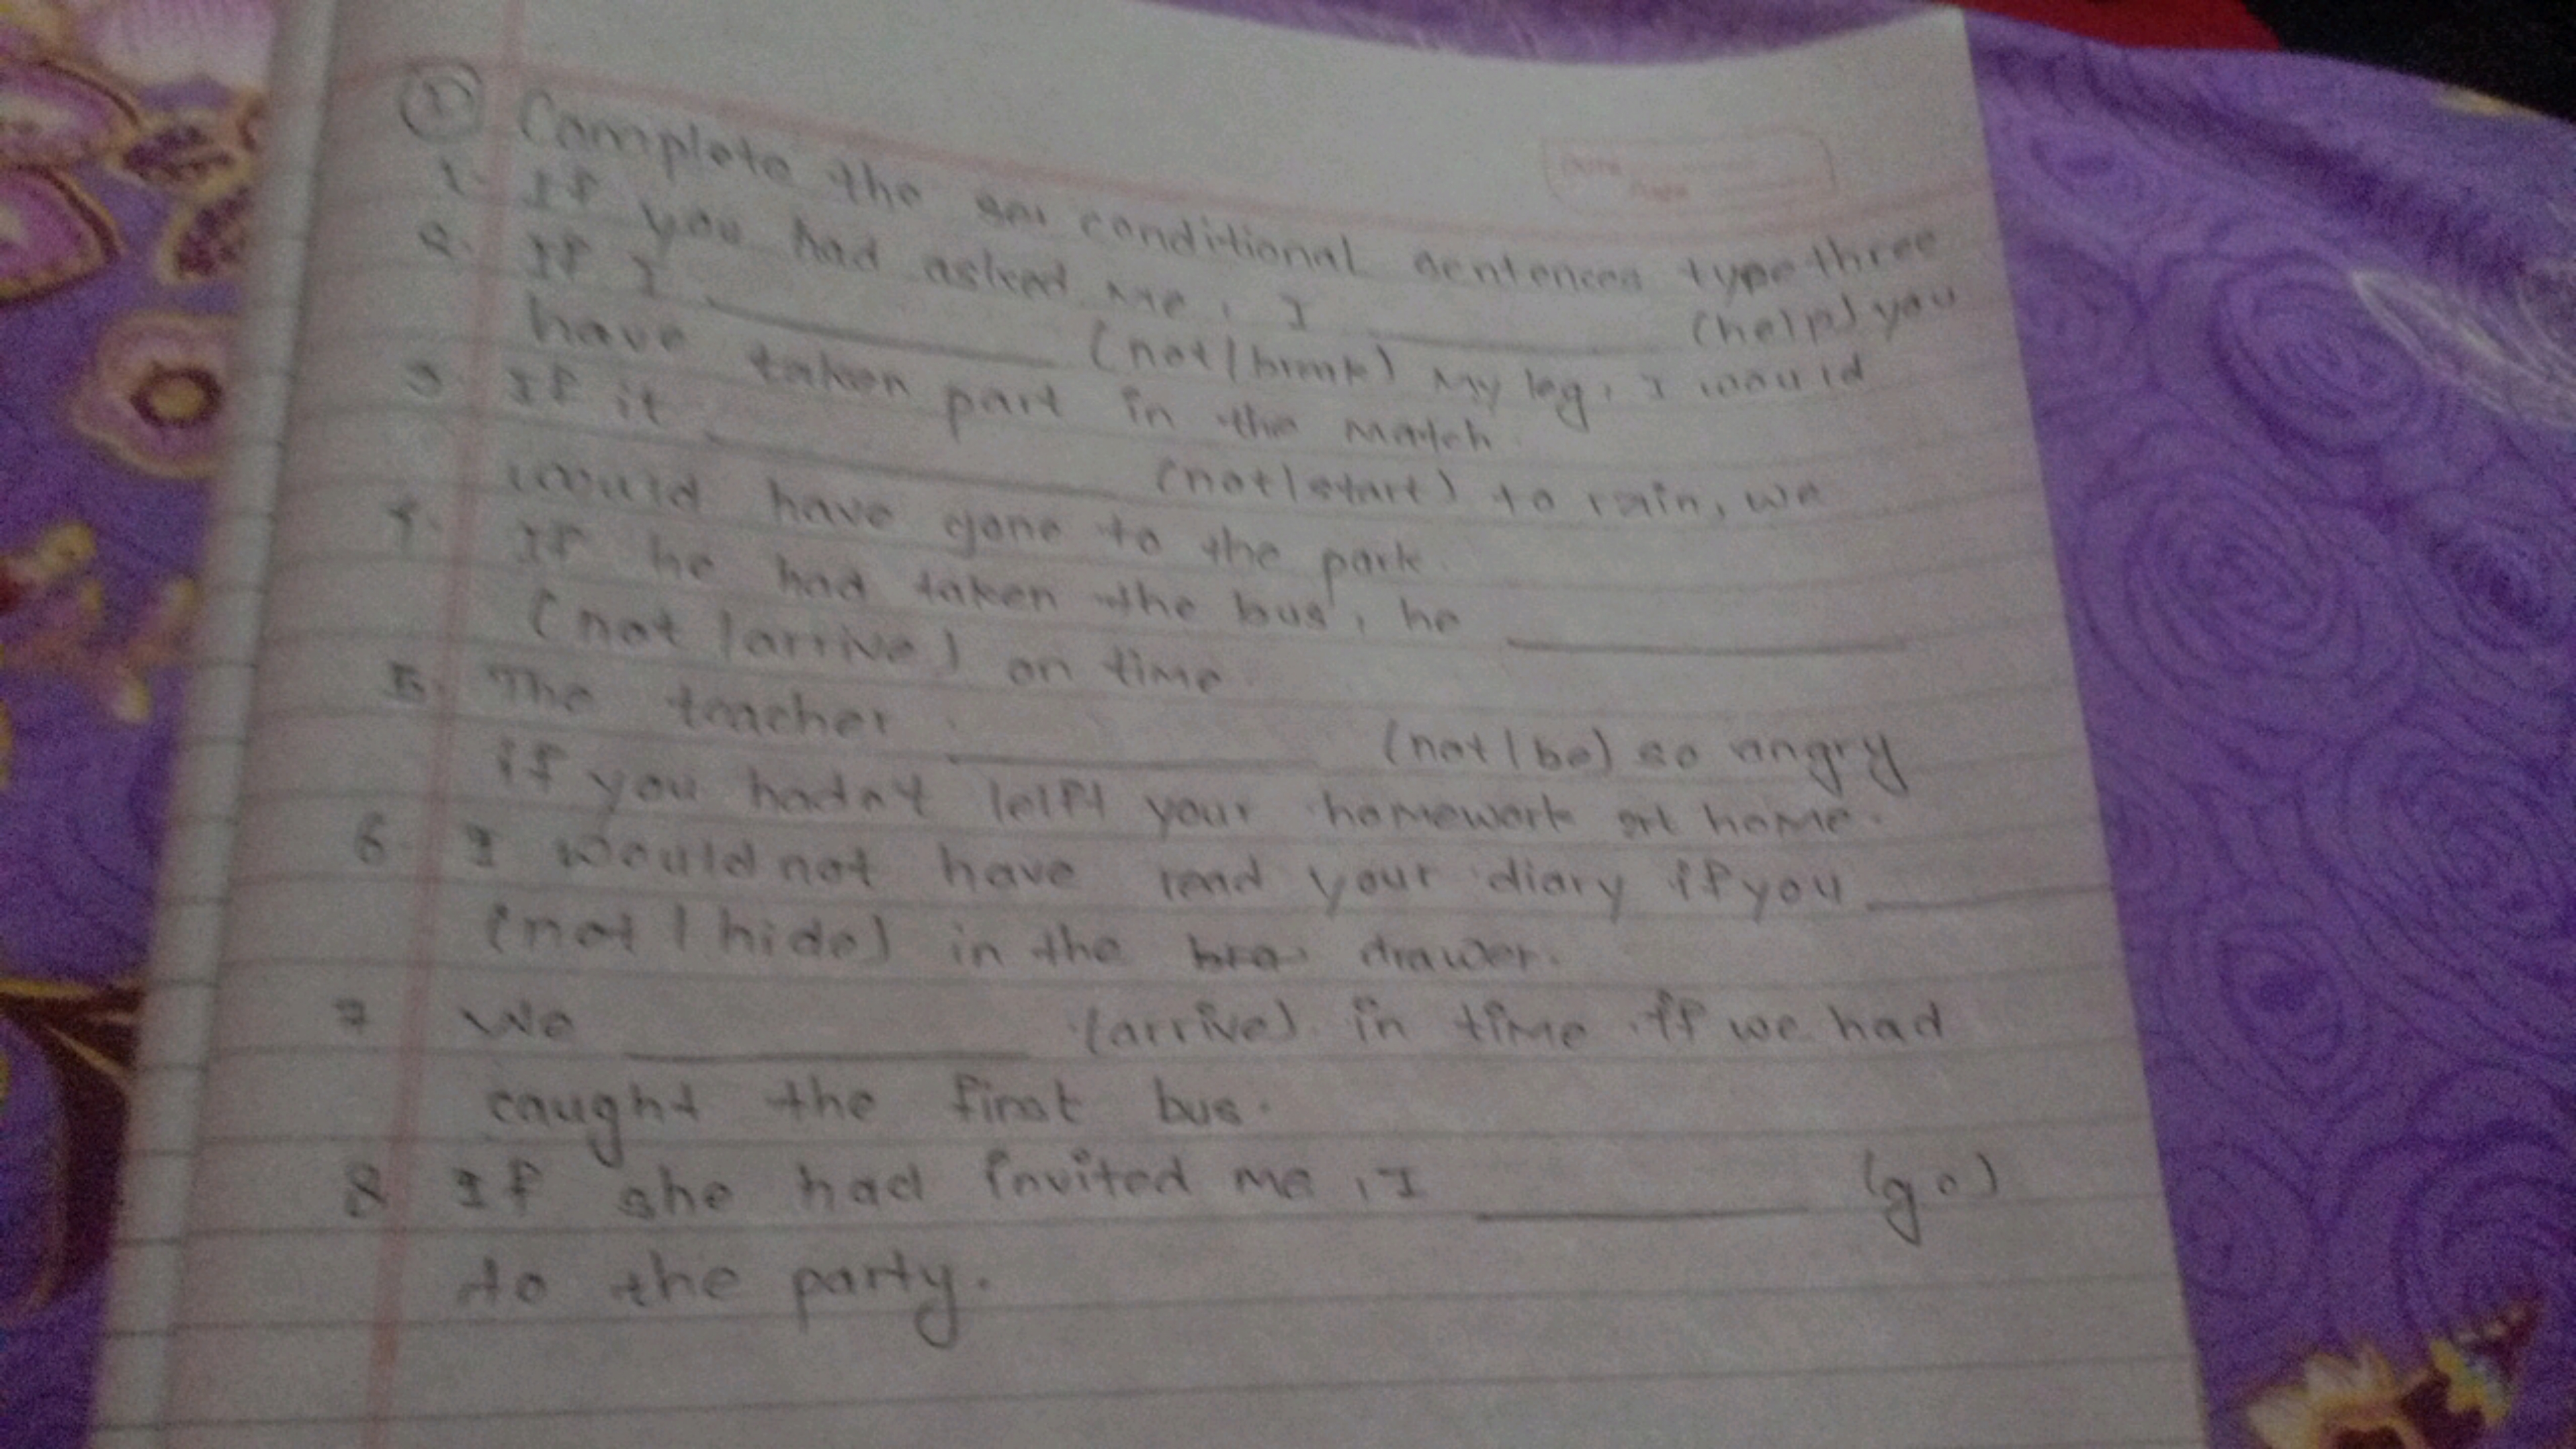 ① Complete the conditional sentences type three
1. If you had asked me, I ________ (help) you
2. If I ________ (not/break) my leg, I would
have taken part in the match.
3. If it ________ (not/start) to rain, we
would have gone to the park.
4. If he had taken the bus, he ________
(not /arrive) on time.
5. The teacher ________ (not/be) so angry
if you hadn't left your homework at home.
6. I would not have read your diary if you ____
(not / hide) in the drawer.
7 We ________ (arrive) in time if we had
caught the first bus.
8 If she had invited me, I ________ (go)
to the party.